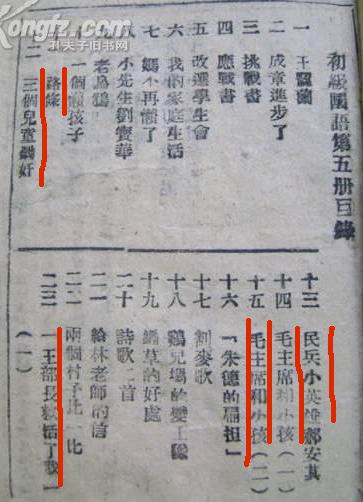 初級國語第五册目錄
一 王蘭
二 成章進步了
三 挑戰書
四 應戰書
五 改選學生會
六 我的家庭生活
七 不再懶了
八 小先生劉寶華
老烏鴉
一個懶孩子
路條
二 三個兒童鋤奸
十三 民兵小英雄郝安其
十四 毛主席和小孩（一）
十五 毛主席和小孩（二）
十六 「朱德的扁担」
十七 割麥歌
十八 鷄兒場的變工隊
十九 鋤草的好處
二十 詩歌二首
二一 給林老師的信
二二 兩個村子比一比
二三 「王部長救活了我」
（一）
夫子旧书网